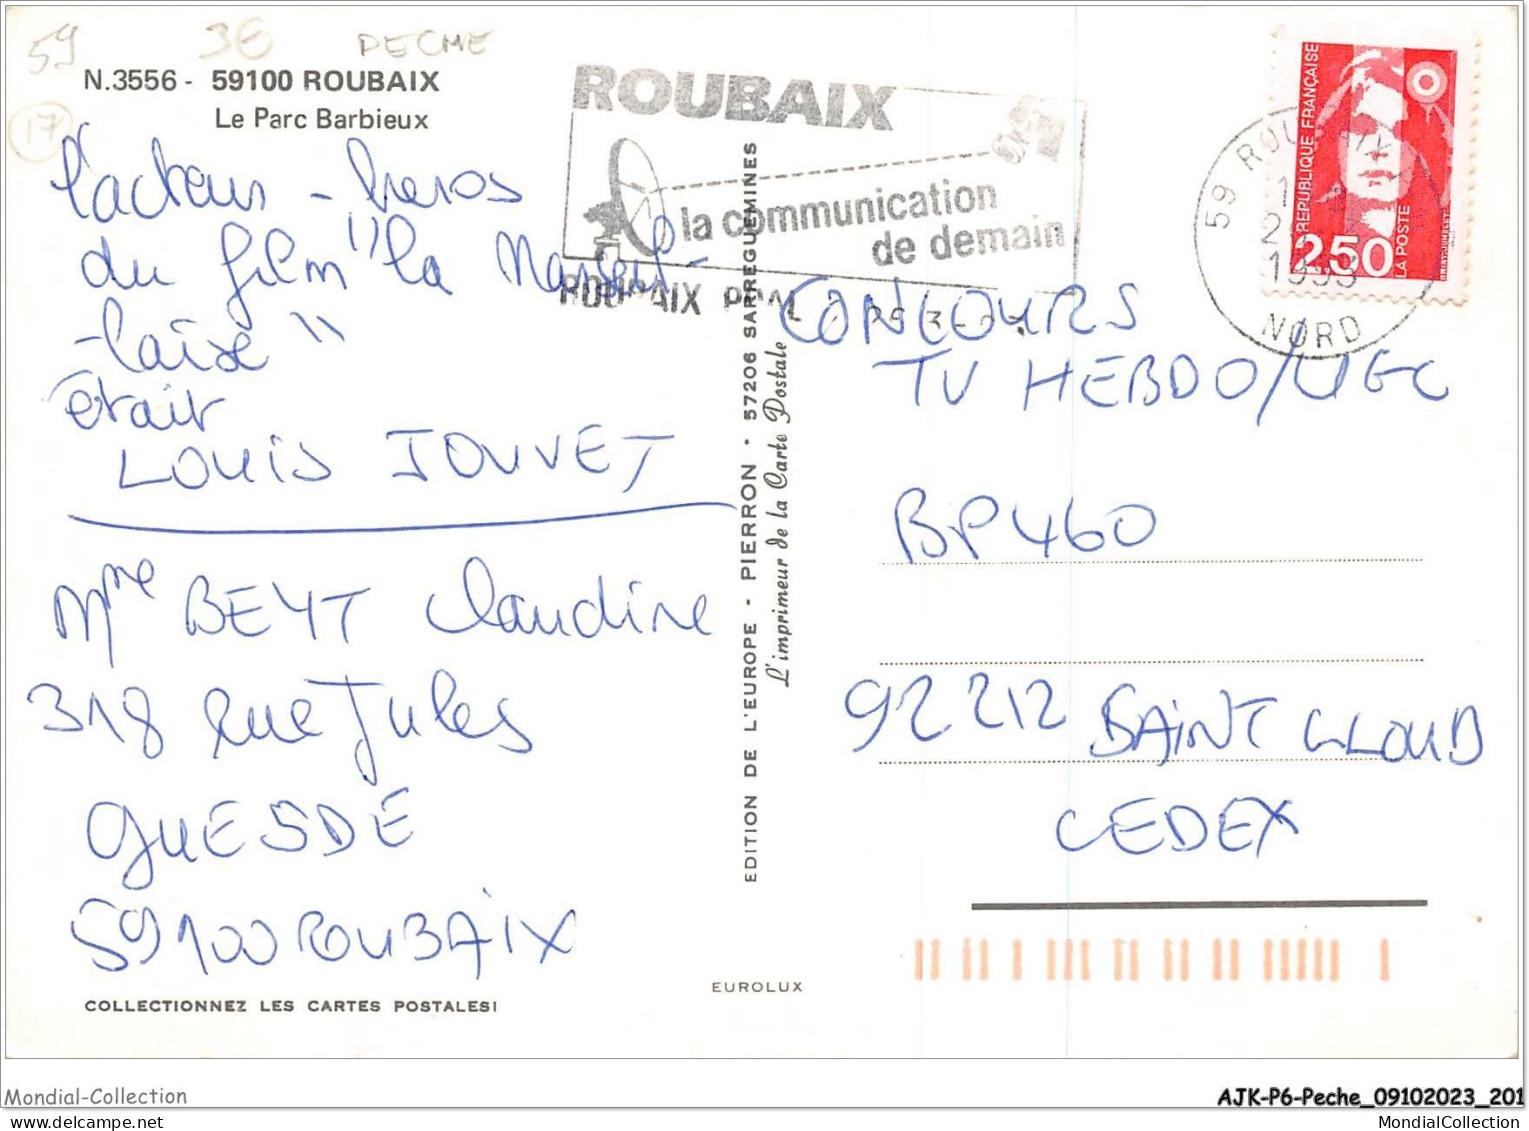 59
3€
PECHE
N.3556 - 59100 ROUBAIX
Le Parc Barbieux
17
l'acteur - heros
du film "la Marseil-
-laise"
était
LOUIS JOUVET
Mme BEYT Claudine
318 rue Jules
GUESDE
59100 ROUBAIX
COLLECTIONNEZ LES CARTES POSTALES!
EDITION DE L'EUROPE - PIERRON - 57206 SARREGUEMINES
L'imprimeur de la Carte Postale
EUROLUX
ROUBAIX
la communication
de demain
ROUBAIX
59 ROUBAIX
1993
NORD
REPUBLIQUE FRANÇAISE
2,50
LA POSTE
CONCOURS
TV HEBDO/UGC
BP 460
92212 SAINT CLOUD
CEDEX
Mondial-Collection
AJK-P6-Peche_09102023_201
MondialCollection